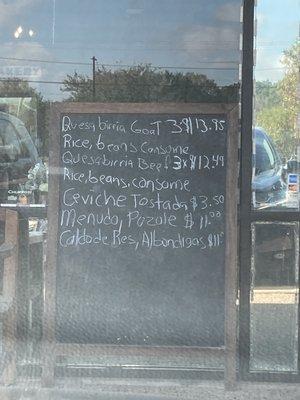 BAKERY
Quesabirria Goat 3$13.95
Rice, beans Consume
Quesabirria Beef 3x$12.49
Rice, beans, consume
Ceviche Tostada $3.50
Menudo, Pozole $11.00
Caldo de Res, Albondigas, $11